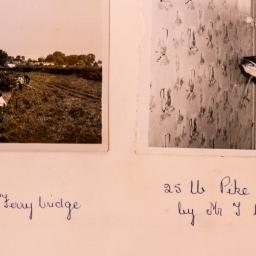 Ferry bridge
25 lb Pike
by Mr T